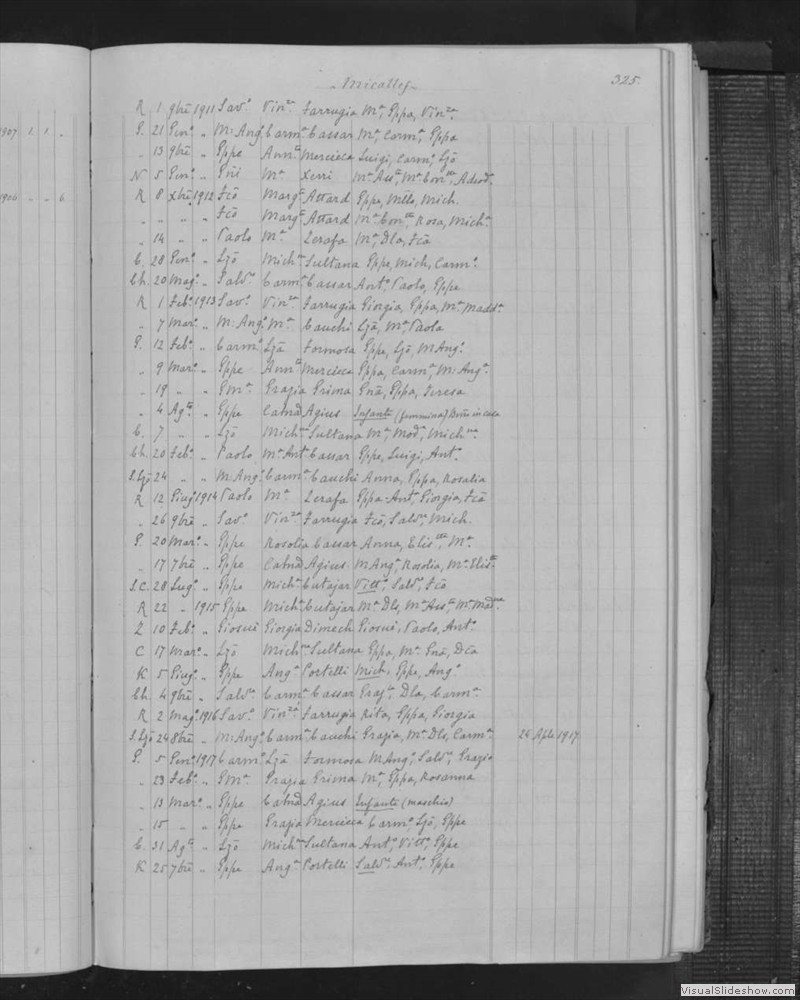 Micallef
325.
R 1 9bre 1911 Savo. Vinza. Farrugia Ma, Gppa, Vinza.
G. 21 Geno. " M: Ango. Carma. Cassar Ma, Carma, Gppa
1907 1. 1 "
" 13 9bre " Gppe Annta. Mercieca Luigi, Carmo, Ljo
N 5 Geno. " Gni Ma. Xerri Ma Assta, Ma Conta, Adeoda.
1906 " " 6.
R 8 xbre 1912 Fco Marga. Attard Gppe, Mich.
" " " " Fco Marga. Attard Ma Conta, Rosa, Micha.
" 14 " " Paolo Ma. Zerafa Ma, Dla, Fca
C. 28 Geno. " Ljo Micha. Sultana Gppe, Mich, Carmo.
Ch. 20 Mago. " Salvo. Carma. Cassar Anto. Paolo, Gppe
R 1 Febo. 1913 Savo. Vinza. Farrugia Giorgia, Gppa, Ma Madda.
" 7 Maro. " M: Ango. Ma. Cauchi Lja, Ma Paola
G. 12 Febo. " Carmo. Lja Formosa Gppe, Ljo, M Ango.
" 9 Maro. " Gppe Annta. Mercieca Gppa, Carma, M: Anga.
" 19 " " Gma. Grazia Grima Gna, Gppa, Teresa
" 4 Agto. " Gppe Catna Agius Infante (femmina) in casa
C. 7 " " Ljo Micha. Sultana Ma, Moda, Michna.
Ch. 20 Febo. " Paolo Ma Anta Cassar Gppe, Luigi, Anto.
S. Ljo 24 " " M: Ango. Carma. Cauchi Anna, Gppa, Rosalia
R 12 Giugo. 1914 Paolo Ma. Zerafa Gppa Anta, Giorgia, Fca
" 26 9bre " Savo. Vinza. Farrugia Fco, Salvo, Mich.
G. 20 Maro. " Gppe Rosolia Cassar Anna, Elistta, Ma.
" 17 7bre " Gppe Catna Agius M Anga, Rosolia, Ma Elistta
S.C. 28 Lugo. " Gppe Micha. Cutajar Vitta, Salva, Fca
R 22 " 1915 Gppe Micha. Cutajar Ma Dls, Ma Assta, Ma Madna.
Z 10 Febo. " Giosue Giorgia Dimech Giosue, Paolo, Anto.
C 17 Maro. " Ljo Micha. Sultana Gppa, Ma Gna, Dca
K 5 Giugo. " Gppe Anga. Portelli Mich, Gppe, Ango.
Ch. 4 9bre " Salvo. Carma. Cassar Graza, Dla, Carma.
R 2 Mago. 1916 Savo. Vinza. Farrugia Rita, Gppa, Giorgia
S. Ljo 24 8bre " M: Ango. Carma. Cauchi Grazia, Ma Dls, Carma. 24 Aple 1917
G. 5 Geno. 1917 Carmo. Lja Formosa M Ango, Salvo, Grazio
" 23 Febo. " Gma. Grazia Grima Ma, Gppa, Rosanna
" 13 Maro. " Gppe Catna Agius Infante (maschio)
" 15 " " Gppe Grazia Mercieca Carmo, Ljo, Gppe
C. 31 Agto. " Ljo Micha. Sultana Anto. Vitto, Gppe
K 25 7bre " Gppe Anga. Portelli Salvo. Anto. Gppe
VisualSlideshow.com